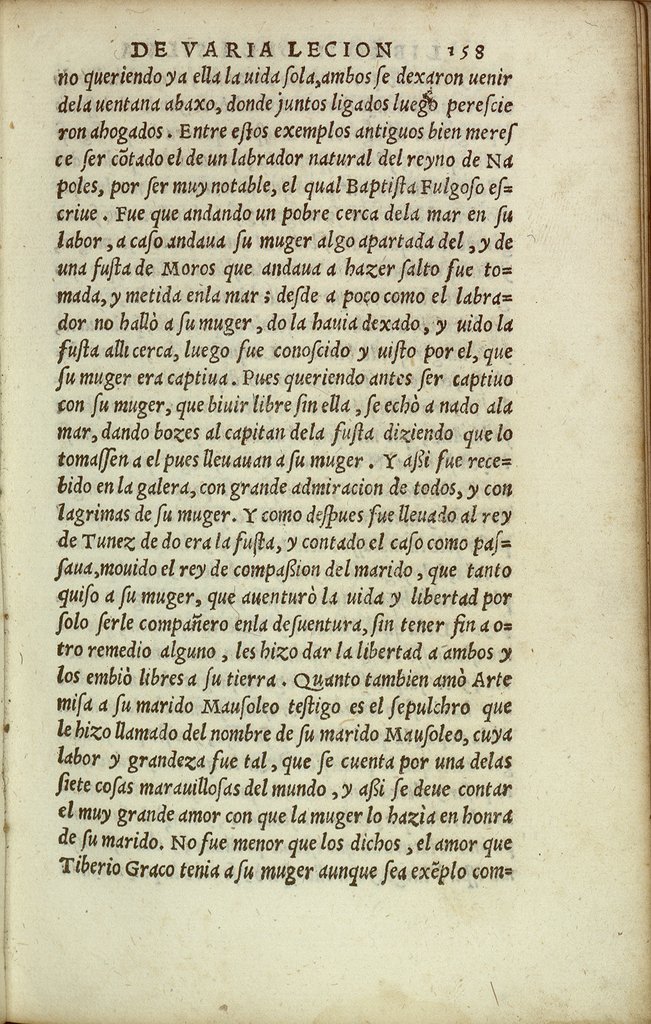 DE VARIA LECION 158
no queriendo ya ella la uida sola,ambos se dexaron uenir
dela uentana abaxo, donde juntos ligados luego perescie
ron ahogados. Entre estos exemplos antiguos bien meres
ce ser cõtado el de un labrador natural del reyno de Na
poles, por ser muy notable, el qual Baptista Fulgoso es=
criue. Fue que andando un pobre cerca dela mar en su
labor, a caso andaua su muger algo apartada del, y de
una fusta de Moros que andaua a hazer salto fue to=
mada, y metida enla mar; desde a poco como el labra=
dor no hallò a su muger, do la hauia dexado, y uido la
fusta alli cerca, luego fue conoscido y uisto por el, que
su muger era captiua. Pues queriendo antes ser captiuo
con su muger, que biuir libre sin ella, se echò a nado ala
mar, dando bozes al capitan dela fusta diziendo que lo
tomassen a el pues lleuauan a su muger. Y aßi fue rece=
bido en la galera, con grande admiracion de todos, y con
lagrimas de su muger. Y como despues fue lleuado al rey
de Tunez de do era la fusta, y contado el caso como pas=
saua,mouido el rey de compaßion del marido, que tanto
quiso a su muger, que auenturò la uida y libertad por
solo serle compañero enla desuentura, sin tener fin a o=
tro remedio alguno, les hizo dar la libertad a ambos y
los embiò libres a su tierra. Quanto tambien amò Arte
misa a su marido Mausoleo testigo es el sepulchro que
le hizo llamado del nombre de su marido Mausoleo, cuya
labor y grandeza fue tal, que se cuenta por una delas
siete cosas marauillosas del mundo, y aßi se deue contar
el muy grande amor con que la muger lo hazìa en honra
de su marido. No fue menor que los dichos, el amor que
Tiberio Graco tenia a su muger aunque sea exẽplo com=